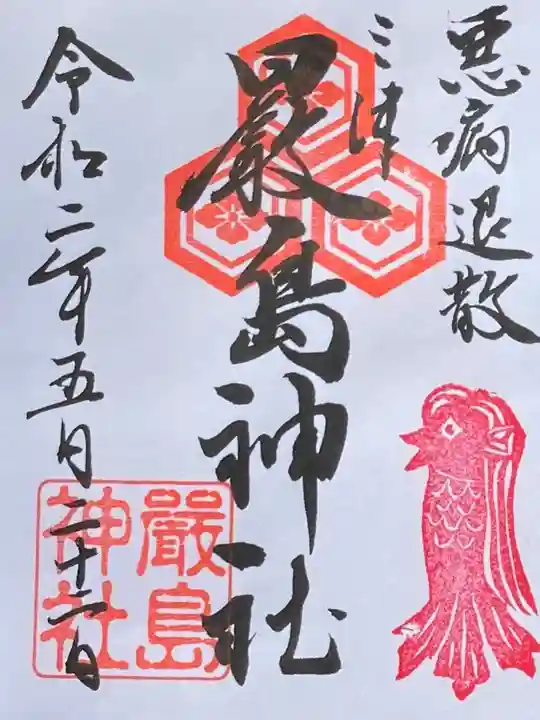 悪病退散
三津
厳島神社
嚴島
神社
令和二年五月二十二日